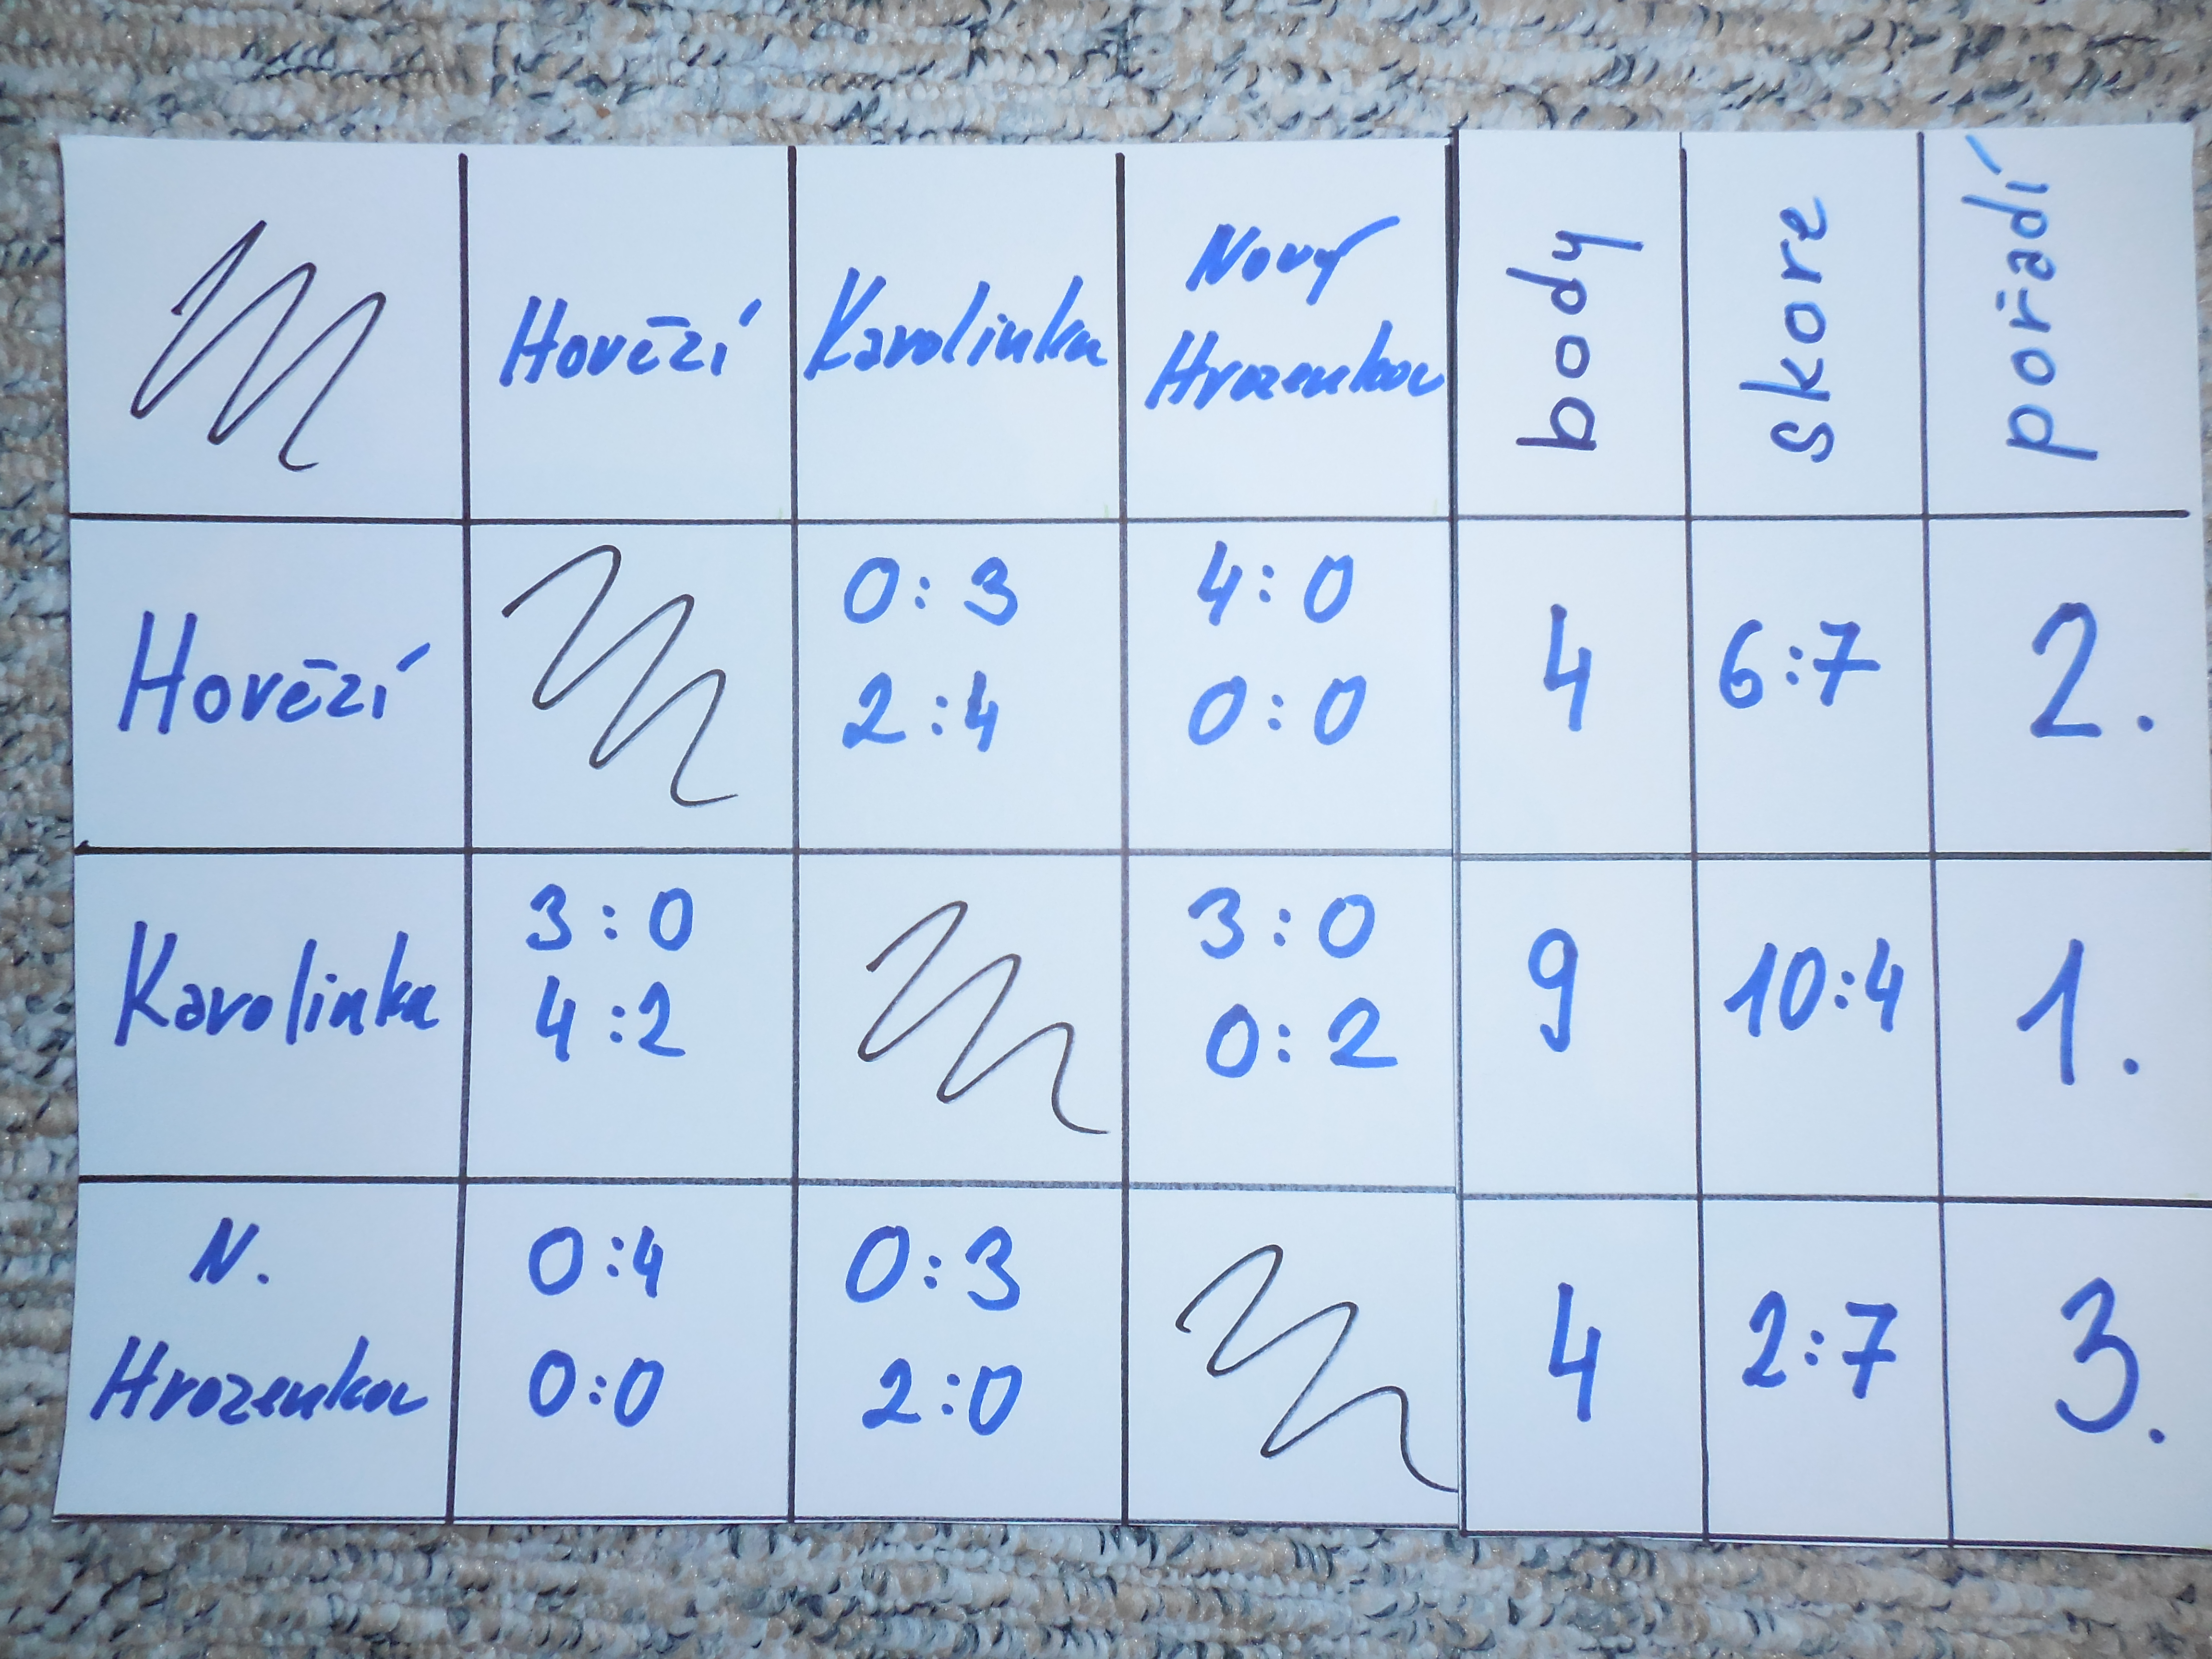 Hovězí Karolinka Nový Hrozenkov body skore pořadí
Hovězí 0:3 4:0 4 6:7 2.
2:4 0:0
Karolinka 3:0 3:0 9 10:4 1.
4:2 0:2
N. Hrozenkov 0:4 0:3 4 2:7 3.
0:0 2:0